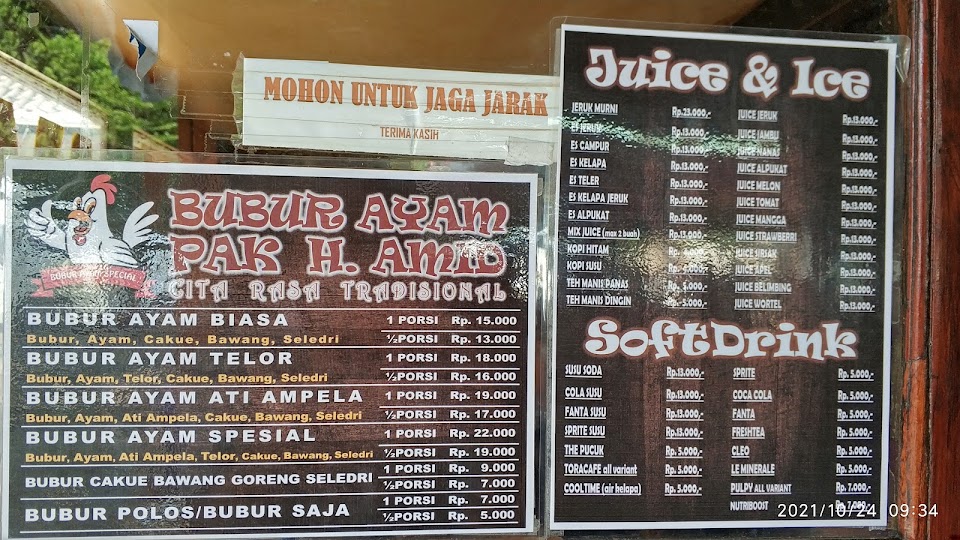 MOHON UNTUK JAGA JARAK
TERIMA KASIH
BUBUR AYAM
PAK H. AMID
CITA RASA TRADISIONAL
BUBUR AYAM BIASA 1 PORSI Rp. 15.000
Bubur, Ayam, Cakue, Bawang, Seledri ½PORSI Rp. 13.000
BUBUR AYAM TELOR 1 PORSI Rp. 18.000
Bubur, Ayam, Telor, Cakue, Bawang, Seledri ½PORSI Rp. 16.000
BUBUR AYAM ATI AMPELA 1 PORSI Rp. 19.000
Bubur, Ayam, Ati Ampela, Cakue, Bawang, Seledri ½PORSI Rp. 17.000
BUBUR AYAM SPESIAL 1 PORSI Rp. 22.000
Bubur, Ayam, Ati Ampela, Telor, Cakue, Bawang, Seledri ½PORSI Rp. 19.000
BUBUR CAKUE BAWANG GORENG SELEDRI 1 PORSI Rp. 9.000
½PORSI Rp. 7.000
BUBUR POLOS/BUBUR SAJA 1 PORSI Rp. 7.000
½PORSI Rp. 5.000
Juice & Ice
JERUK MURNI Rp.23.000,- JUICE JERUK Rp.13.000,-
ES JERUK Rp.13.000,- JUICE JAMBU Rp.13.000,-
ES CAMPUR Rp.13.000,- JUICE NANAS Rp.13.000,-
ES KELAPA Rp.13.000,- JUICE ALPUKAT Rp.13.000,-
ES TELER Rp.13.000,- JUICE MELON Rp.13.000,-
ES KELAPA JERUK Rp.13.000,- JUICE TOMAT Rp.13.000,-
ES ALPUKAT Rp.13.000,- JUICE MANGGA Rp.13.000,-
MIX JUICE (max 2 buah) JUICE STRAWBERRI Rp.13.000,-
KOPI HITAM JUICE SIRSAK Rp.13.000,-
KOPI SUSU JUICE APEL Rp.13.000,-
TEH MANIS PANAS JUICE BELIMBING Rp.13.000,-
TEH MANIS DINGIN Rp. 5.000,- JUICE WORTEL Rp.13.000,-
SoftDrink
SUSU SODA Rp.13.000,- SPRITE Rp. 5.000,-
COLA SUSU Rp.13.000,- COCA COLA Rp. 5.000,-
FANTA SUSU Rp.13.000,- FANTA Rp. 5.000,-
SPRITE SUSU Rp.13.000,- FRESHTEA Rp. 5.000,-
THE PUCUK Rp. 5.000,- CLEO Rp. 5.000,-
TORACAFE all variant Rp. 5.000,- LE MINERALE Rp. 5.000,-
COOLTIME (air kelapa) Rp. 5.000,- PULPY ALL VARIANT Rp. 7.000,-
NUTRIBOOST
2021/10/24 09:34